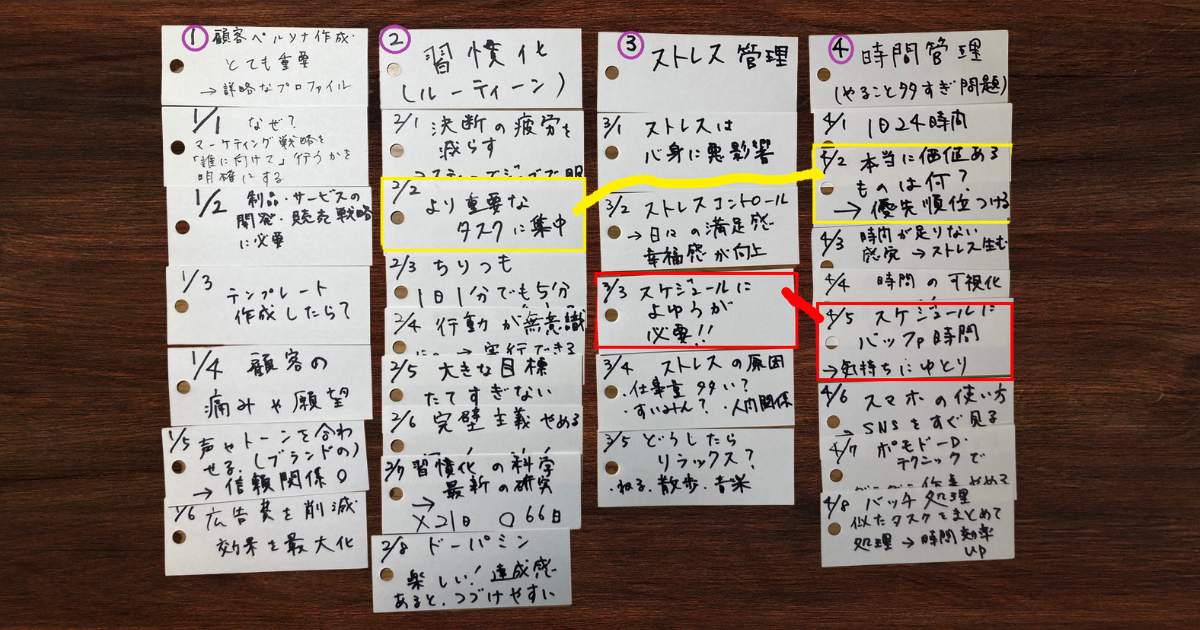 ①
顧客ペルソナ作成・
とても重要
→ 詳略なプロファイル
1/1 なぜ?
マーケティング戦略を
「誰に向けて」行うかを
明確にする
1/2 製品・サービスの
開発・販売戦略
に必要
1/3
テンプレート
作成したらて
1/4 顧客の
痛みや願望
1/5 声やトーンを合わ
せる。(ブランドの)
→ 信頼関係〇
1/6 広告費を削減
効果を最大化
②
習慣化
(ルーティーン)
2/1 決断の疲労を
減らす
2/2
より重要な
タスクに集中
2/3 ちりつも
1日1分でも5分
2/4 行動が無意識
→ 実行できる
2/5 大きな目標
たてすぎない
2/6 完璧主義やめる
2/7 習慣化の科学
→ 最新の研究
×21日 〇66日
2/8 ドーパミン
楽しい!達成感
あると、つづけやすい
③
ストレス管理
3/1 ストレスは
心身に悪影響
3/2 ストレスコントロール
→ 日々の満足感
幸福感が向上
3/3 スケジュールに
よゆうが
必要!!
3/4 ストレスの原因
・仕事量多い?
・すいみん?・人間関係
3/5 どうしたら
リラックス?
・ねる、散歩、音楽
④
時間管理
(やること多すぎ問題)
4/1 1日24時間
4/2 本当に価値ある
ものは何?
→ 優先順位つける
4/3 時間が足りない
感覚 → ストレス生む
4/4 時間の可視化
4/5 スケジュールに
バッファ時間
→ 気持ちにゆとり
4/6 スマホの使い方
→ SNSをすぐ見る
4/7 ポモドーロ・
テクニックで
4/8 バッチ処理
似たタスクをまとめて
処理 → 時間効率
up